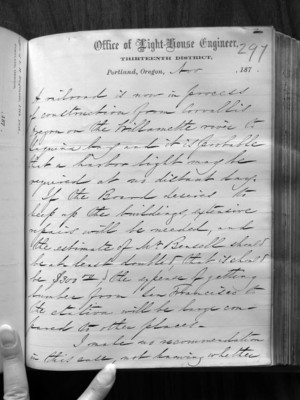 Office of Light-House Engineer,
THIRTEENTH DISTRICT,
297
Portland, Oregon, 187
A railroad is now in process
of construction from Corvallis
Ogon on the Willamette river to
Yaquina bay and it is probable
that a harbor light may be
required at no distant day.
If the Board desires to
keep up the buildings, extensive
repairs will be needed, and
the estimate of Mr Bensell should
be at least doubled that is should
be $500 the expense of getting
lumber from San Francisco to
the station will be large com-
pared to other places.
I make no recommendation
in this case, not knowing whether